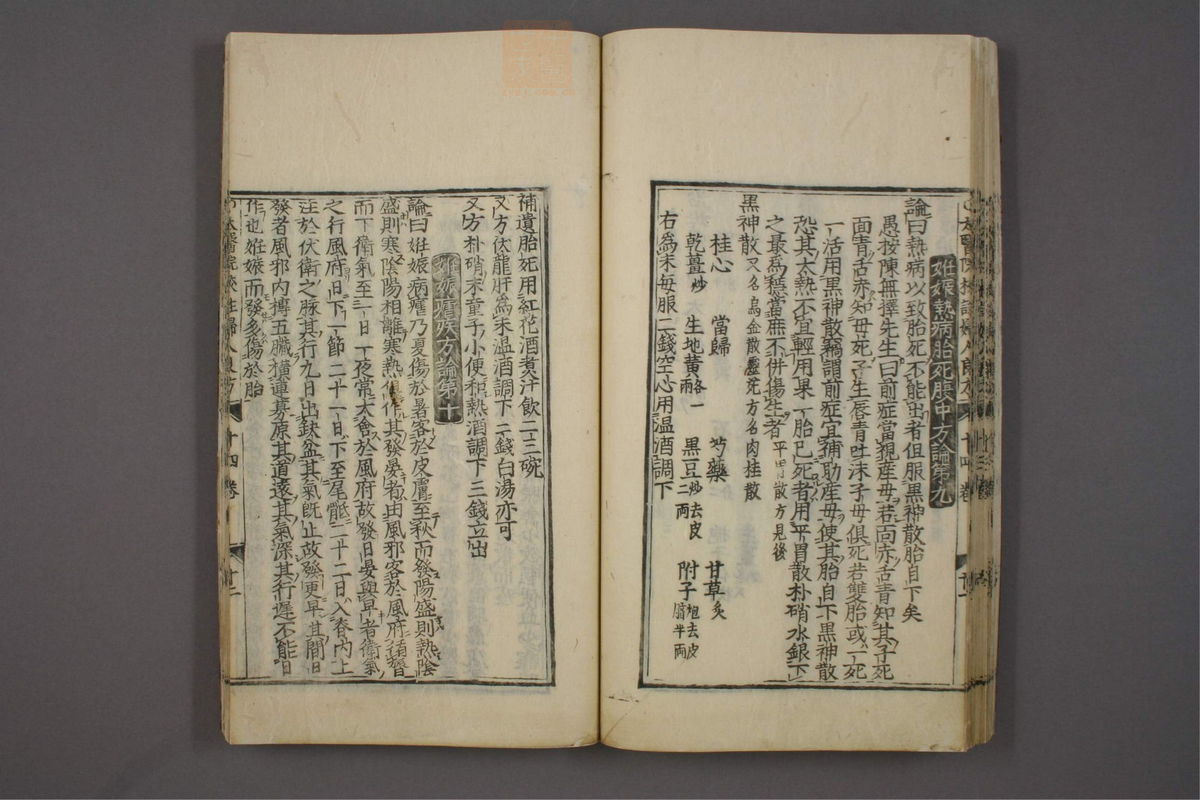 妊娠熱病胎死腹中方論第九
論曰熱病以致胎死不能出者但服黑神散胎自下矣
愚按陳無擇先生曰前症當視産母若面赤舌青知其子死
面青舌赤知母死子生唇青吐沫子母俱死若雙胎或一死
一活用黑神散竊謂前症宜補助産母使其胎自下黑神散
恐其太熱不宜輕用果一胎已死者用平胃散朴硝水銀下
之最爲穩當庶不併傷生者平胃散方見後
黑神散又名烏金散靈苑方名肉桂散
桂心 當歸 芍藥 甘草炙
乾薑炒 生地黃各一兩 黑豆炒去皮二兩 附子炮去皮臍半兩
右爲末每服二錢空心用温酒調下
十四卷
廿一
補遺胎死用紅花酒煮汁飲二三碗
又方伏龍肝爲末温酒調下二錢白湯亦可
又方朴硝末童子小便和熱酒調下三錢立出
妊娠瘧疾方論第十
論曰妊娠病瘧乃夏傷於暑客於皮膚至秋而發陽盛則熱陰
盛則寒陰陽相離寒熱俱作其發晏者由風邪客於風府循膂
而下衛氣至一日一夜常大會於風府故發日晏與早者衛氣
之行風府日下一節二十一日下至尾骶二十二日入脊内上
注於伏衛之脉其行九日出缺盆其氣既止故發更早其間日
發者風邪内搏五臟橫連募原其道遠其氣深其行遲不能日
作也妊娠而發多傷於胎
十四卷
廿二